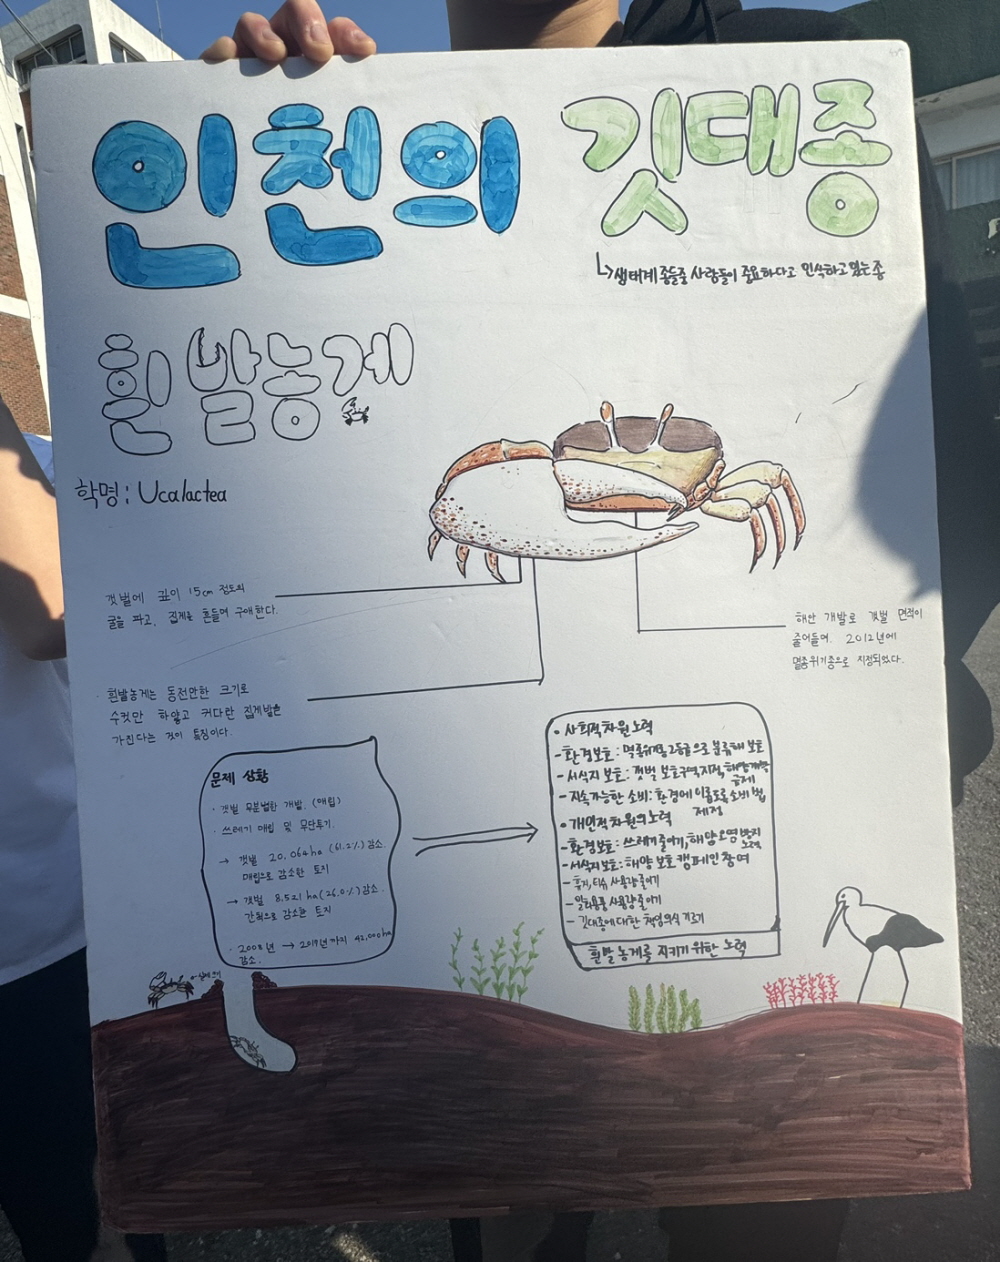 인천의 깃대종
↳생태계 종들중 사람들이 중요하다고 인식하고 있는 종
흰발농게
학명: Ucalactea
갯벌에 깊이 15cm 정도의
굴을 파고, 집게를 흔들며 구애한다.
해안 개발로 갯벌 면적이
줄어들어. 2012년에
멸종위기종으로 지정되었다.
· 흰발농게는 동전만한 크기로
수컷만 하얗고 커다란 집게발을
가진다는 것이 특징이다.
문제 상황
· 갯벌 무분별한 개발. (매립)
· 쓰레기 매립 및 무단투기.
→ 갯벌 20.064ha (61.2%) 감소.
매립으로 감소한 토지
→ 갯벌 8.521ha (26.0%) 감소.
간척으로 감소한 토지
· 2008년 → 2019년까지 42,000ha
감소.
• 사회적차원 노력
- 환경보호: 멸종위기종 2등급으로 분류해 보호
- 서식지 보호: 갯벌 보호구역 지정, 해양개발
규제
- 지속가능한 소비: 환경에 이롭도록 소비 법
제정
• 개인적 차원의 노력
- 환경보호: 쓰레기 줄이기, 해양오염 방지
노력
- 서식지보호: 해양 보호 캠페인 참여
- 휴지, 티슈 사용량 줄이기
- 일회용품 사용량 줄이기
- 깃대종에 대한 책임의식 기르기
흰발농게를 지키기 위한 노력
실제 크기